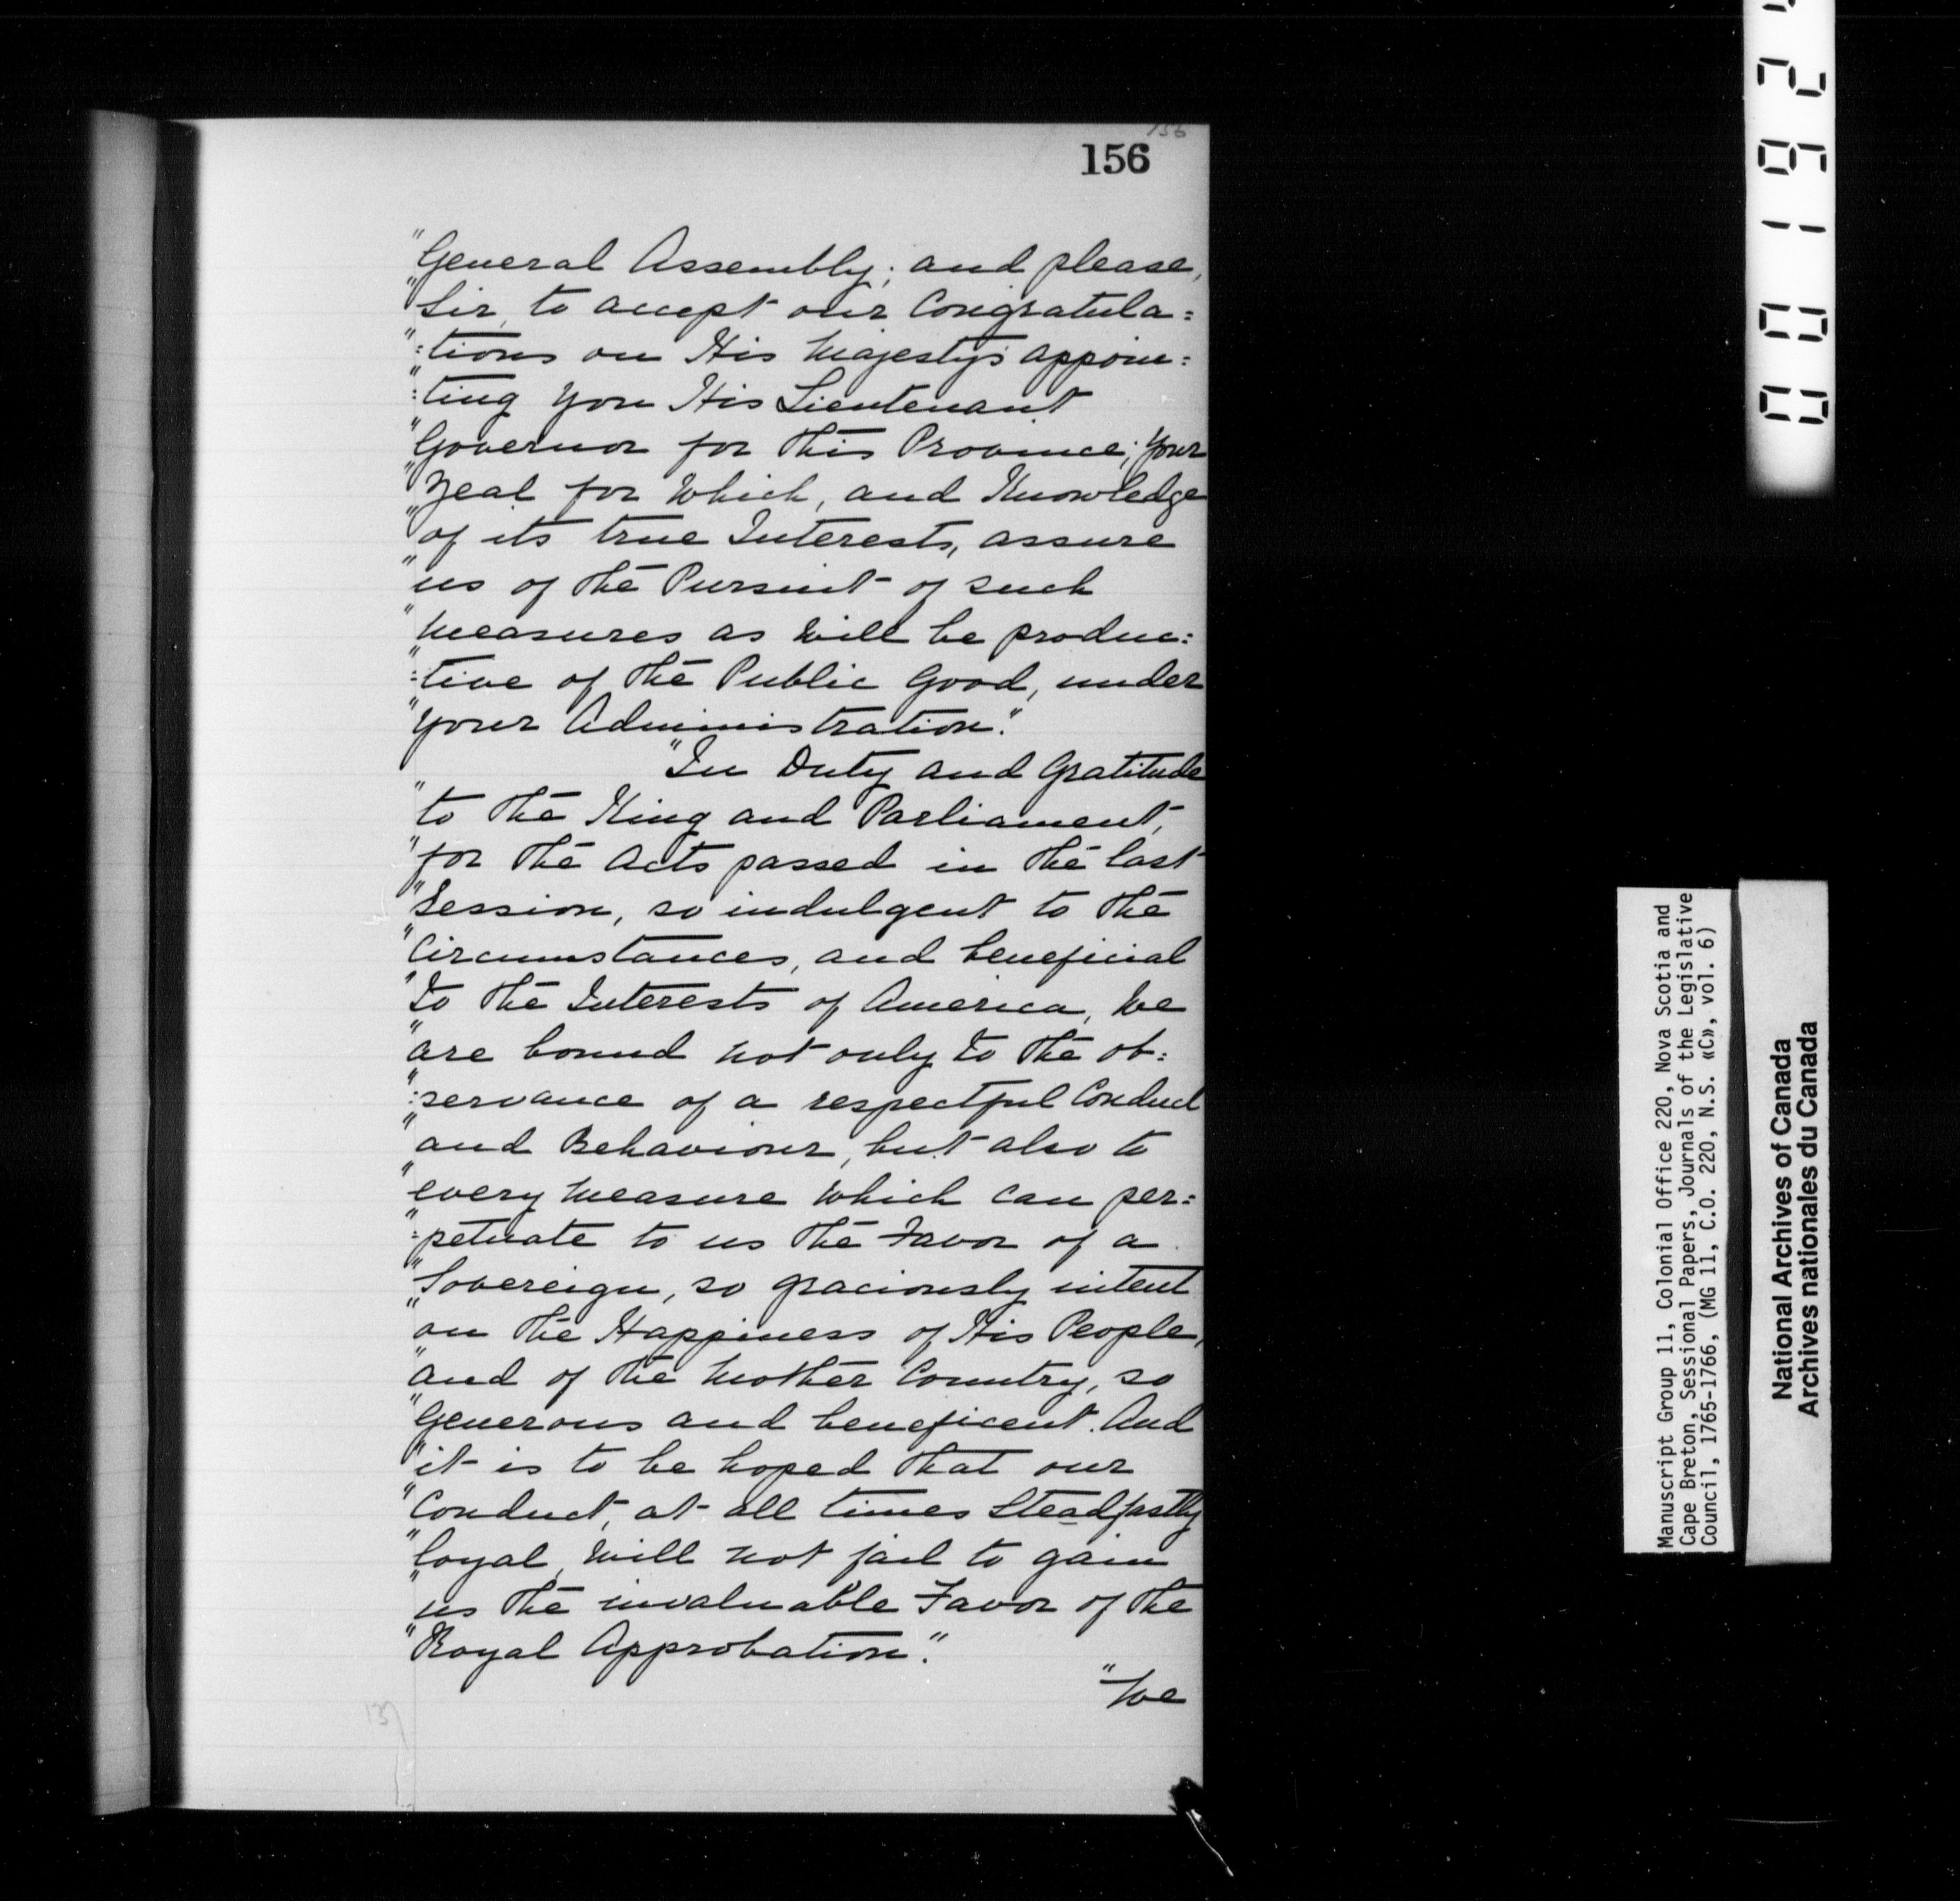 156
156
"General Assembly; and please,
"Sir, to accept our Congratula=
"=tions on His Majesty's appoin=
"=ting you His Lieutenant
"Governor for this Province; Your
"Zeal for Which, and Knowledge
"of its true Interests, assure
"us of the Pursuit of such
"Measures as Will be produc=
"=tive of the Public Good, under
"your Administration."
"In Duty and Gratitude
"to the King and Parliament,
"for the Acts passed in the last
"Session, so indulgent to the
"Circumstances, and beneficial
"to the Interests of America, We
"are bound not only to the ob=
"=servance of a respectful Conduct
"and Behaviour, but also to
"every Measure Which can per=
"=petuate to us the Favor of a
"Sovereign, so graciously intent
"on the Happiness of His People,
"and of the Mother Country, so
"generous and beneficent. And
"it is to be hoped that our
"Conduct, at all times Steadfastly
"loyal, Will not fail to gain
"us the invaluable Favor of the
"Royal Approbation."
"We
137
Manuscript Group 11, Colonial Office 220, Nova Scotia and
Cape Breton, Sessional Papers, Journals of the Legislative
Council, 1765-1766, (MG 11, C.O. 220, N.S. «C», vol. 6)
National Archives of Canada
Archives nationales du Canada